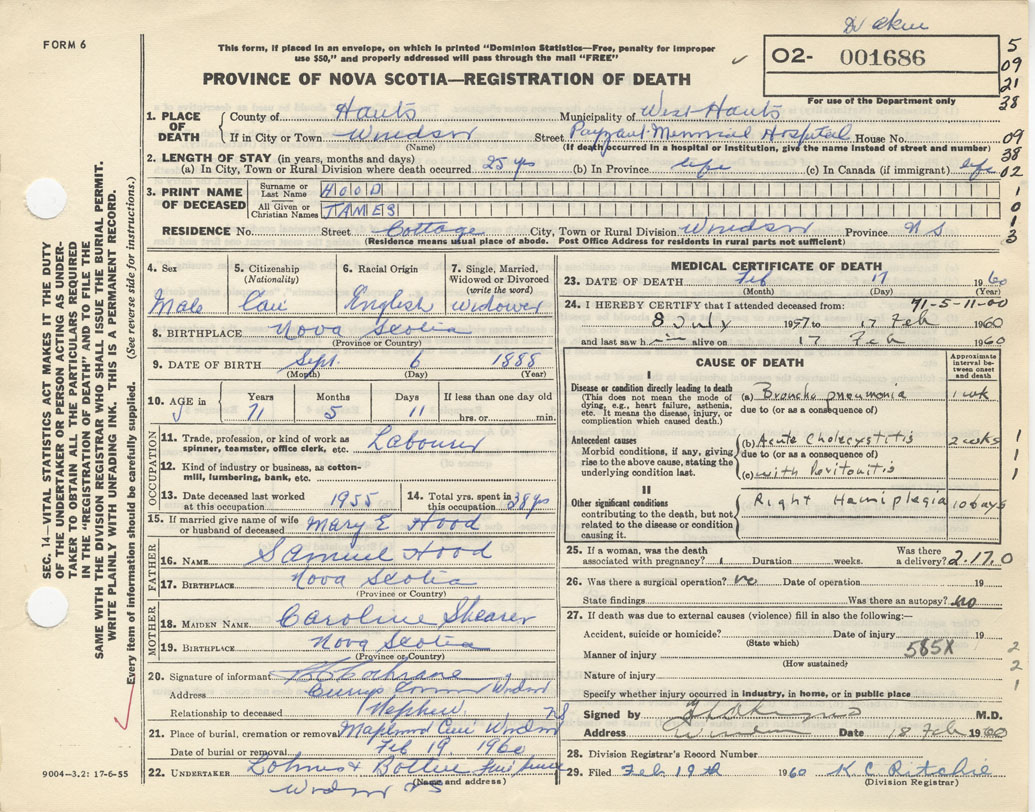 Dr akin
FORM 6
This form, if placed in an envelope, on which is printed "Dominion Statistics—Free, penalty for improper
use $50," and properly addressed will pass through the mail "FREE"
PROVINCE OF NOVA SCOTIA—REGISTRATION OF DEATH
O2- 001686
For use of the Department only
5
09
21
38
09
38
02
1
0
1
3
1. PLACE OF DEATH
County of Hants Municipality of West Hants
If in City or Town Windsor Street Payzant Memorial Hospital House No.
(Name) (If death occurred in a hospital or institution, give the name instead of street and number)
2. LENGTH OF STAY (in years, months and days)
(a) In City, Town or Rural Division where death occurred 25 yrs (b) In Province life (c) In Canada (if immigrant) life
3. PRINT NAME OF DECEASED
Surname or Last Name HOOD
All Given or Christian Names JAMES
RESIDENCE No. Street Cottage City, Town or Rural Division Windsor Province N S
(Residence means usual place of abode. Post Office Address for residents in rural parts not sufficient)
SEC. 14—VITAL STATISTICS ACT MAKES IT THE DUTY
OF THE UNDERTAKER OR PERSON ACTING AS UNDER-
TAKER TO OBTAIN ALL THE PARTICULARS REQUIRED
IN THE "REGISTRATION OF DEATH" AND TO FILE THE
SAME WITH THE DIVISION REGISTRAR WHO SHALL ISSUE THE BURIAL PERMIT.
WRITE PLAINLY WITH UNFADING INK. THIS IS A PERMANENT RECORD.
Every item of information should be carefully supplied. (See reverse side for instructions.)
4. Sex 5. Citizenship (Nationality) 6. Racial Origin 7. Single, Married, Widowed or Divorced (write the word)
Male Can English Widower
8. BIRTHPLACE Nova Scotia
(Province or Country)
9. DATE OF BIRTH Sept. 6 1888
(Month) (Day) (Year)
10. AGE in Years Months Days If less than one day old
71 5 11 hrs. or min.
OCCUPATION
11. Trade, profession, or kind of work as
spinner, teamster, office clerk, etc. Labourer
12. Kind of industry or business, as cotton-
mill, lumbering, bank, etc.
13. Date deceased last worked
at this occupation 1955
14. Total yrs. spent in
this occupation 38 yrs
15. If married give name of wife
or husband of deceased Mary E Hood
FATHER
16. NAME Samuel Hood
17. BIRTHPLACE Nova Scotia
(Province or Country)
MOTHER
18. MAIDEN NAME Caroline Shearer
19. BIRTHPLACE Nova Scotia
(Province or Country)
20. Signature of informant Cochrane
Address Currys Corner Windsor
Relationship to deceased Nephew. NS
21. Place of burial, cremation or removal Maplewood Cem Windsor
Date of burial or removal Feb 19, 1960
22. UNDERTAKER Lohnes &
(Name and address)
Windsor N S
9004—3.2: 17-6-55
MEDICAL CERTIFICATE OF DEATH
23. DATE OF DEATH Feb 17 1960
(Month) (Day) (Year)
71-5-11-00
24. I HEREBY CERTIFY that I attended deceased from:
8 July 1957 to 17 Feb 1960
and last saw him alive on 17 Feb 1960
CAUSE OF DEATH
Approximate interval between onset and death
I
Disease or condition directly leading to death
(This does not mean the mode of
dying, e.g., heart failure, asthenia,
etc. It means the disease, injury, or
complication which caused death.)
(a) Broncho pneumonia 1 wk
due to (or as a consequence of)
Antecedent causes
Morbid conditions, if any, giving
rise to the above cause, stating the
underlying condition last.
(b) Acute Cholecystitis 2 wks 1
due to (or as a consequence of) 1
(c) with Peritonitis 1
II
Other significant conditions
contributing to the death, but not
related to the disease or condition
causing it.
Right Hemiplegia 10 days
25. If a woman, was the death
associated with pregnancy? Duration weeks. Was there
a delivery? 2.17.0
26. Was there a surgical operation? no Date of operation 19
State findings Was there an autopsy? No
27. If death was due to external causes (violence) fill in also the following:—
Accident, suicide or homicide? Date of injury 19
(State which)
Manner of injury 585X 2
(How sustained)
Nature of injury 2
Specify whether injury occurred in industry, in home, or in public place 1
Signed by M.D.
Address Windsor Date 18 Feb 1960
28. Division Registrar's Record Number
29. Filed Feb 19th 1960 K C Ritchie
(Division Registrar)